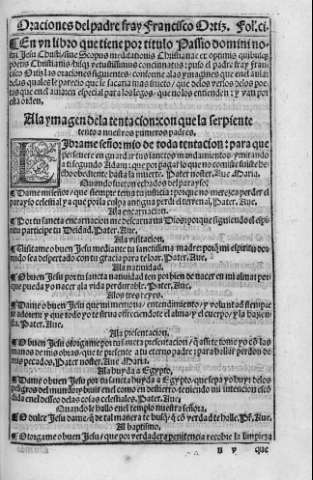 Oraciones del padre fray Francisco Ortiz. Fol. ci.
¶ En vn libro que tiene por titulo Passio domini no
stri Jesu Christi, siue Scopus meditationis Christianæ ex optimis quibusq̃
poetis Christianis hisq̃ vetustissimis concinnatus: puso el padre fray fran
cisco Ortiz las oraciones siguientes: conforme a las ymagines que en el auia:
las quales le parecio que se sacaria mas fructo: que delos versos delos poe
tas que en el auia: en especial para los legos: que no los entienden: y van por
esta orden.
A la ymagen de la tentacion: con que la serpiente
tento a nuestros primeros padres.
LIbrame señor mio de toda tentacion: para que
perseuere en guardar tus sanctos mandamientos: ymitando
a ti segundo Adam: que por pagar lo que no comiste fuiste he-
cho obediente hasta la muerte. Pater noster, Aue Maria.
Quando fueron echados del parayso:
¶ Dame mi señor: que siempre tema tu justicia por que no merezca perder el
parayso celestial ya que por la culpa antigua perdi el terrenal, Pater. Aue.
A la encarnacion.
¶ Por tu sancta encarnacion me descarna mi Dios: por que siguiendo el espi
ritu participe tu Deidad. Pater. Aue.
A la visitacion.
¶ Visitame o buen Jesu mediante tu sanctissima madre: por q̃ mi espiritu dor
mido sea despertado: con tu gracia para te loar. Pater. Aue.
A la natiuidad.
¶ O buen Jesu por tu sancta natiuidad ten por bien de nacer en mi alma: por
que pueda yo nacer a la vida perdurable. Pater. Aue.
A los tres reyes.
¶ Dame o buen Jesu que mi memoria, entendimiento, y voluntad siempre
te adoren: y que todo yo te sirua ofreciendote el alma y el cuerpo, y la hazien
da. Pater. Aue.
A la presentacion.
¶ O buen Jesu obligame por tu sancta presentacion, q̃ assi te tome yo cõ las
manos de mis obras, que te presente a tu eterno padre: para hallar perdon de
mis pecados. Pater noster. Aue Maria.
A la huyda a Egypto,
¶ Dame o buen Jesu por tu sancta huyda a Egypto, que sepa yo huyr delos
peligros del mundo: y biuir en el como en destierro: teniendo mi intencion escõ
dida en el desseo delas cosas celestiales. Pater. Aue.
Quando le hallo en el templo nuestra señora.
¶ O dulce Jesu dame, q̃ de tal manera te busq̃, q̃ cõ verdad te halle. Pr̃, Aue.
Al baptismo,
¶ Otorgame o buen Jesu: que por verdadera penitencia recobre la limpieza
N v que